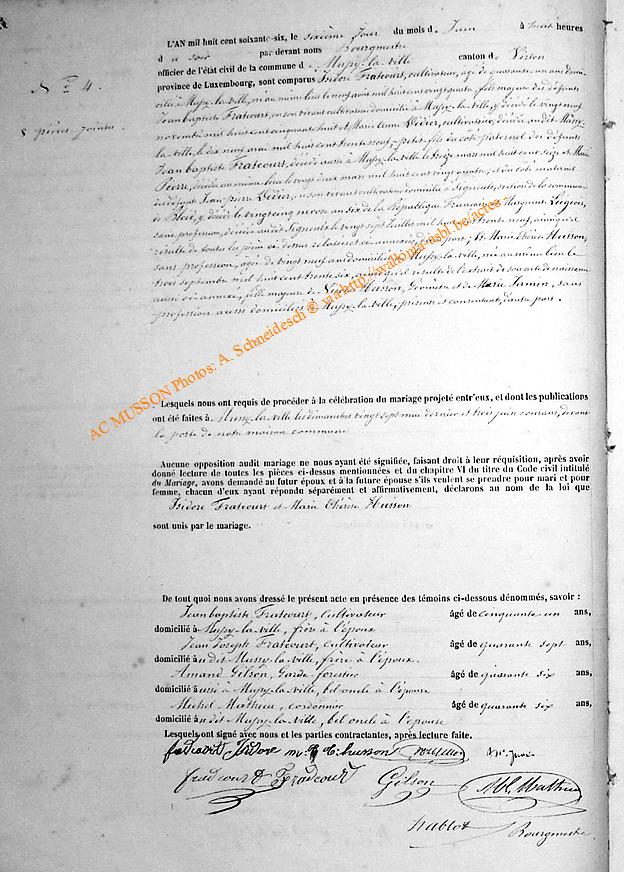 N° 4.
8 pièces jointes
L'AN mil huit cent soixante-six, le sixième jour du mois d. Juin à huit heures
d u soir par devant nous Bourgmestre
officier de l'état civil de la commune d. Mussy-la-ville canton de Virton
province de Luxembourg, sont comparus Isidore Fratcourt, cultivateur, âgé de quarante un ans domi-
cilié à Mussy-la-ville, né au même lieu le mil huit cent vingt quatre, fils majeur des défunts
Jean baptiste Fratcourt, en son vivant cultivateur domicilié à Mussy-la-ville, y décédé le vingt neuf
mil huit cent cinquante huit et Marie Anne Didier, cultivatrice, décédée audit Mussy-
la-ville, le dix neuf mai mil huit cent trente neuf, petit-fils du côté paternel des défunts
Jean baptiste Fratcourt, décédé aussi à Mussy-la-ville le treize mars mil huit cent seize et Marie
Pierre, décédée au même lieu le vingt deux mars mil huit cent vingt quatre, et du côté maternel
des défunts Jean pierre Didier, en son vivant cultivateur domicilié à Signeulx, section de la commune
de Bleid, y décédé le vingt cinq nivose an six de la République Française, et Margueritte Liégeois,
sans profession, décédée audit Signeulx le vingt sept mil huit cent trente neuf, ainsi qu'il
résulte de toutes les pièces ci-dessus relatées et ci-annexées, d'une part; Et Marie Thérèse Husson,
sans profession, âgée de vingt neuf ans domiciliée à Mussy-la-ville, née au même lieu le
trois septembre mil huit cent trente six, ainsi qu'il résulte de l'extrait de son acte de naissance
aussi ci annexé, fille majeure de Husson, Géomètre et de Marie Jamin, sans
profession aussi domiciliés à Mussy-la-ville, présents et consentants, d'autre part.
AC MUSSON Photos: A. Schneidesch ® via http://wallonia-asbl.be/actes
Lesquels nous ont requis de procéder à la célébration du mariage projeté entr'eux, et dont les publications
ont été faites à Mussy-la-ville les dimanches vingt sept mai dernier et trois juin courant, devant
la porte de notre maison commune
Aucune opposition audit mariage ne nous ayant été signifiée, faisant droit à leur réquisition, après avoir
donné lecture de toutes les pièces ci-dessus mentionnées et du chapitre VI du titre du Code civil intitulé
du Mariage, avons demandé au futur époux et à la future épouse s'ils veulent se prendre pour mari et pour
femme, chacun d'eux ayant répondu séparément et affirmativement, déclarons au nom de la loi que
Isidore Fratcourt et Marie Thérèse Husson
sont unis par le mariage.
De tout quoi nous avons dressé le présent acte en présence des témoins ci-dessous dénommés, savoir :
Jean baptiste Fratcourt, cultivateur âgé de cinquante un ans,
domicilié à Mussy-la-ville, frère à l'époux
Jean Joseph Fratcourt, cultivateur âgé de quarante sept ans,
domicilié audit Mussy-la-ville, frère à l'époux.
Amand Gilson, Garde forestier âgé de quarante six ans,
domicilié aussi à Mussy-la-ville, bel oncle à l'épouse
Michel Mathieu, cordonnier âgé de quarante six ans,
domicilié audit Mussy-la-ville, bel oncle à l'épouse
Lesquels ont signé avec nous et les parties contractantes, après lecture faite.
fradcourt Isidore m. th. husson
fradcourt Fradcourt Gilson Mathieu
hablot Bourgmestre